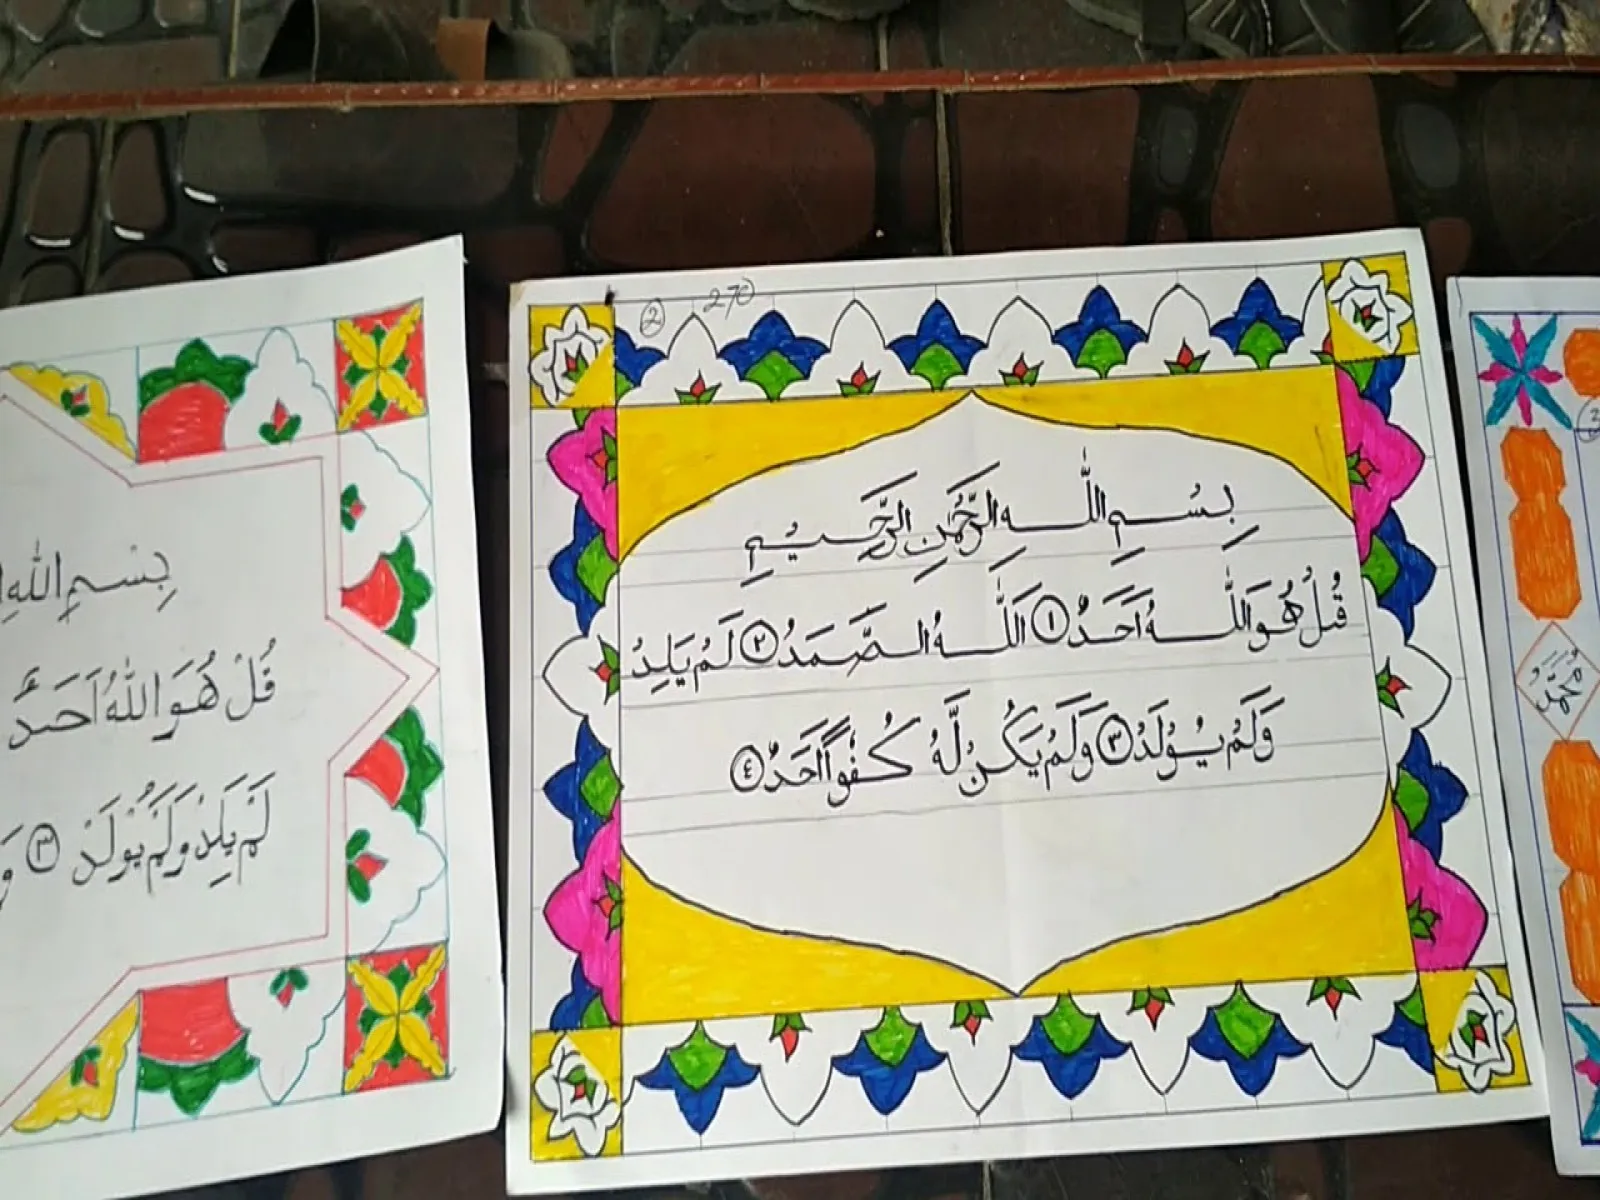 بِسْمِ اللّٰهِ
قُلْ هُوَ اللّٰهُ اَحَدٌ
لَمْ يَلِدْ وَلَمْ يُوْلَدْ ٣
2
270
بِسْمِ اللّٰهِ الرَّحْمٰنِ الرَّحِيْمِ
قُلْ هُوَ اللّٰهُ اَحَدٌ ١ اَللّٰهُ الصَّمَدُ ٢ لَمْ يَلِدْ
وَلَمْ يُوْلَدْ ٣ وَلَمْ يَكُنْ لَّهٗ كُفُوًا اَحَدٌ ٤
مُحَمَّدٌ